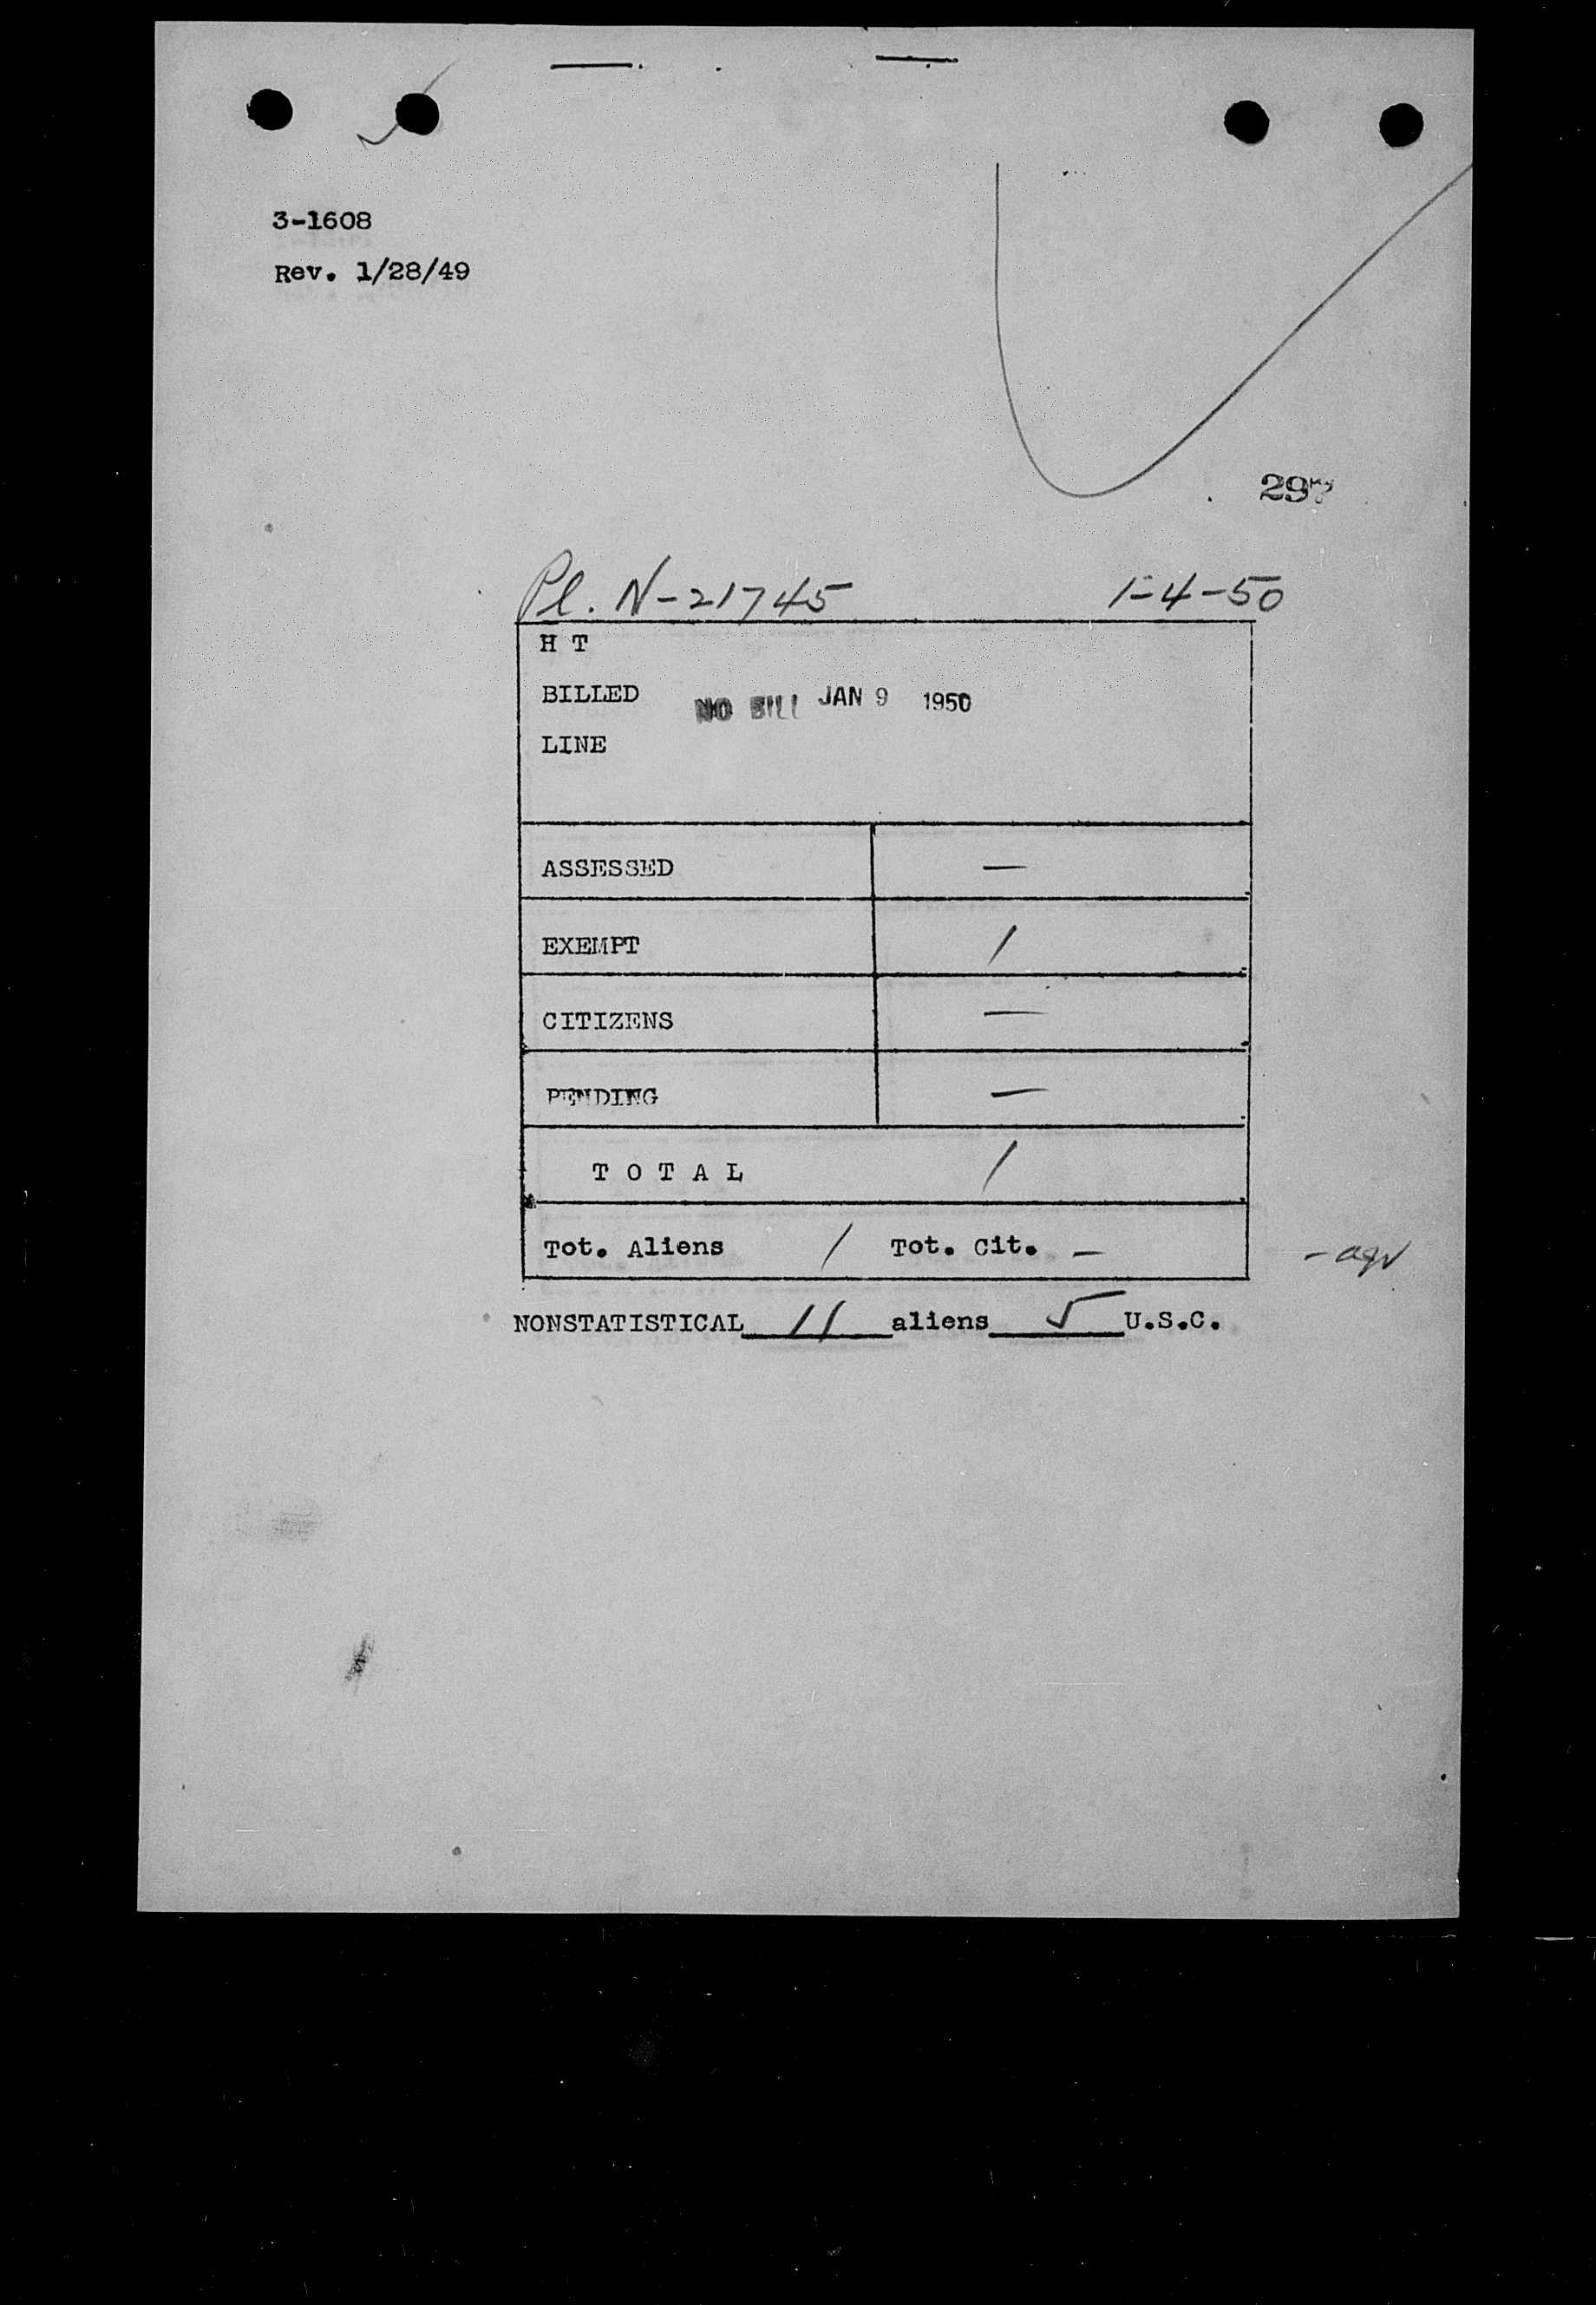 3-1608
Rev. 1/28/49
297
Pl. N-21745 1-4-50
H T
BILLED NO BILL JAN 9 1950
LINE
ASSESSED —
EXEMPT /
CITIZENS —
PENDING —
T O T A L /
Tot. Aliens / Tot. Cit. —
NONSTATISTICAL 11 aliens 5 U.S.C.